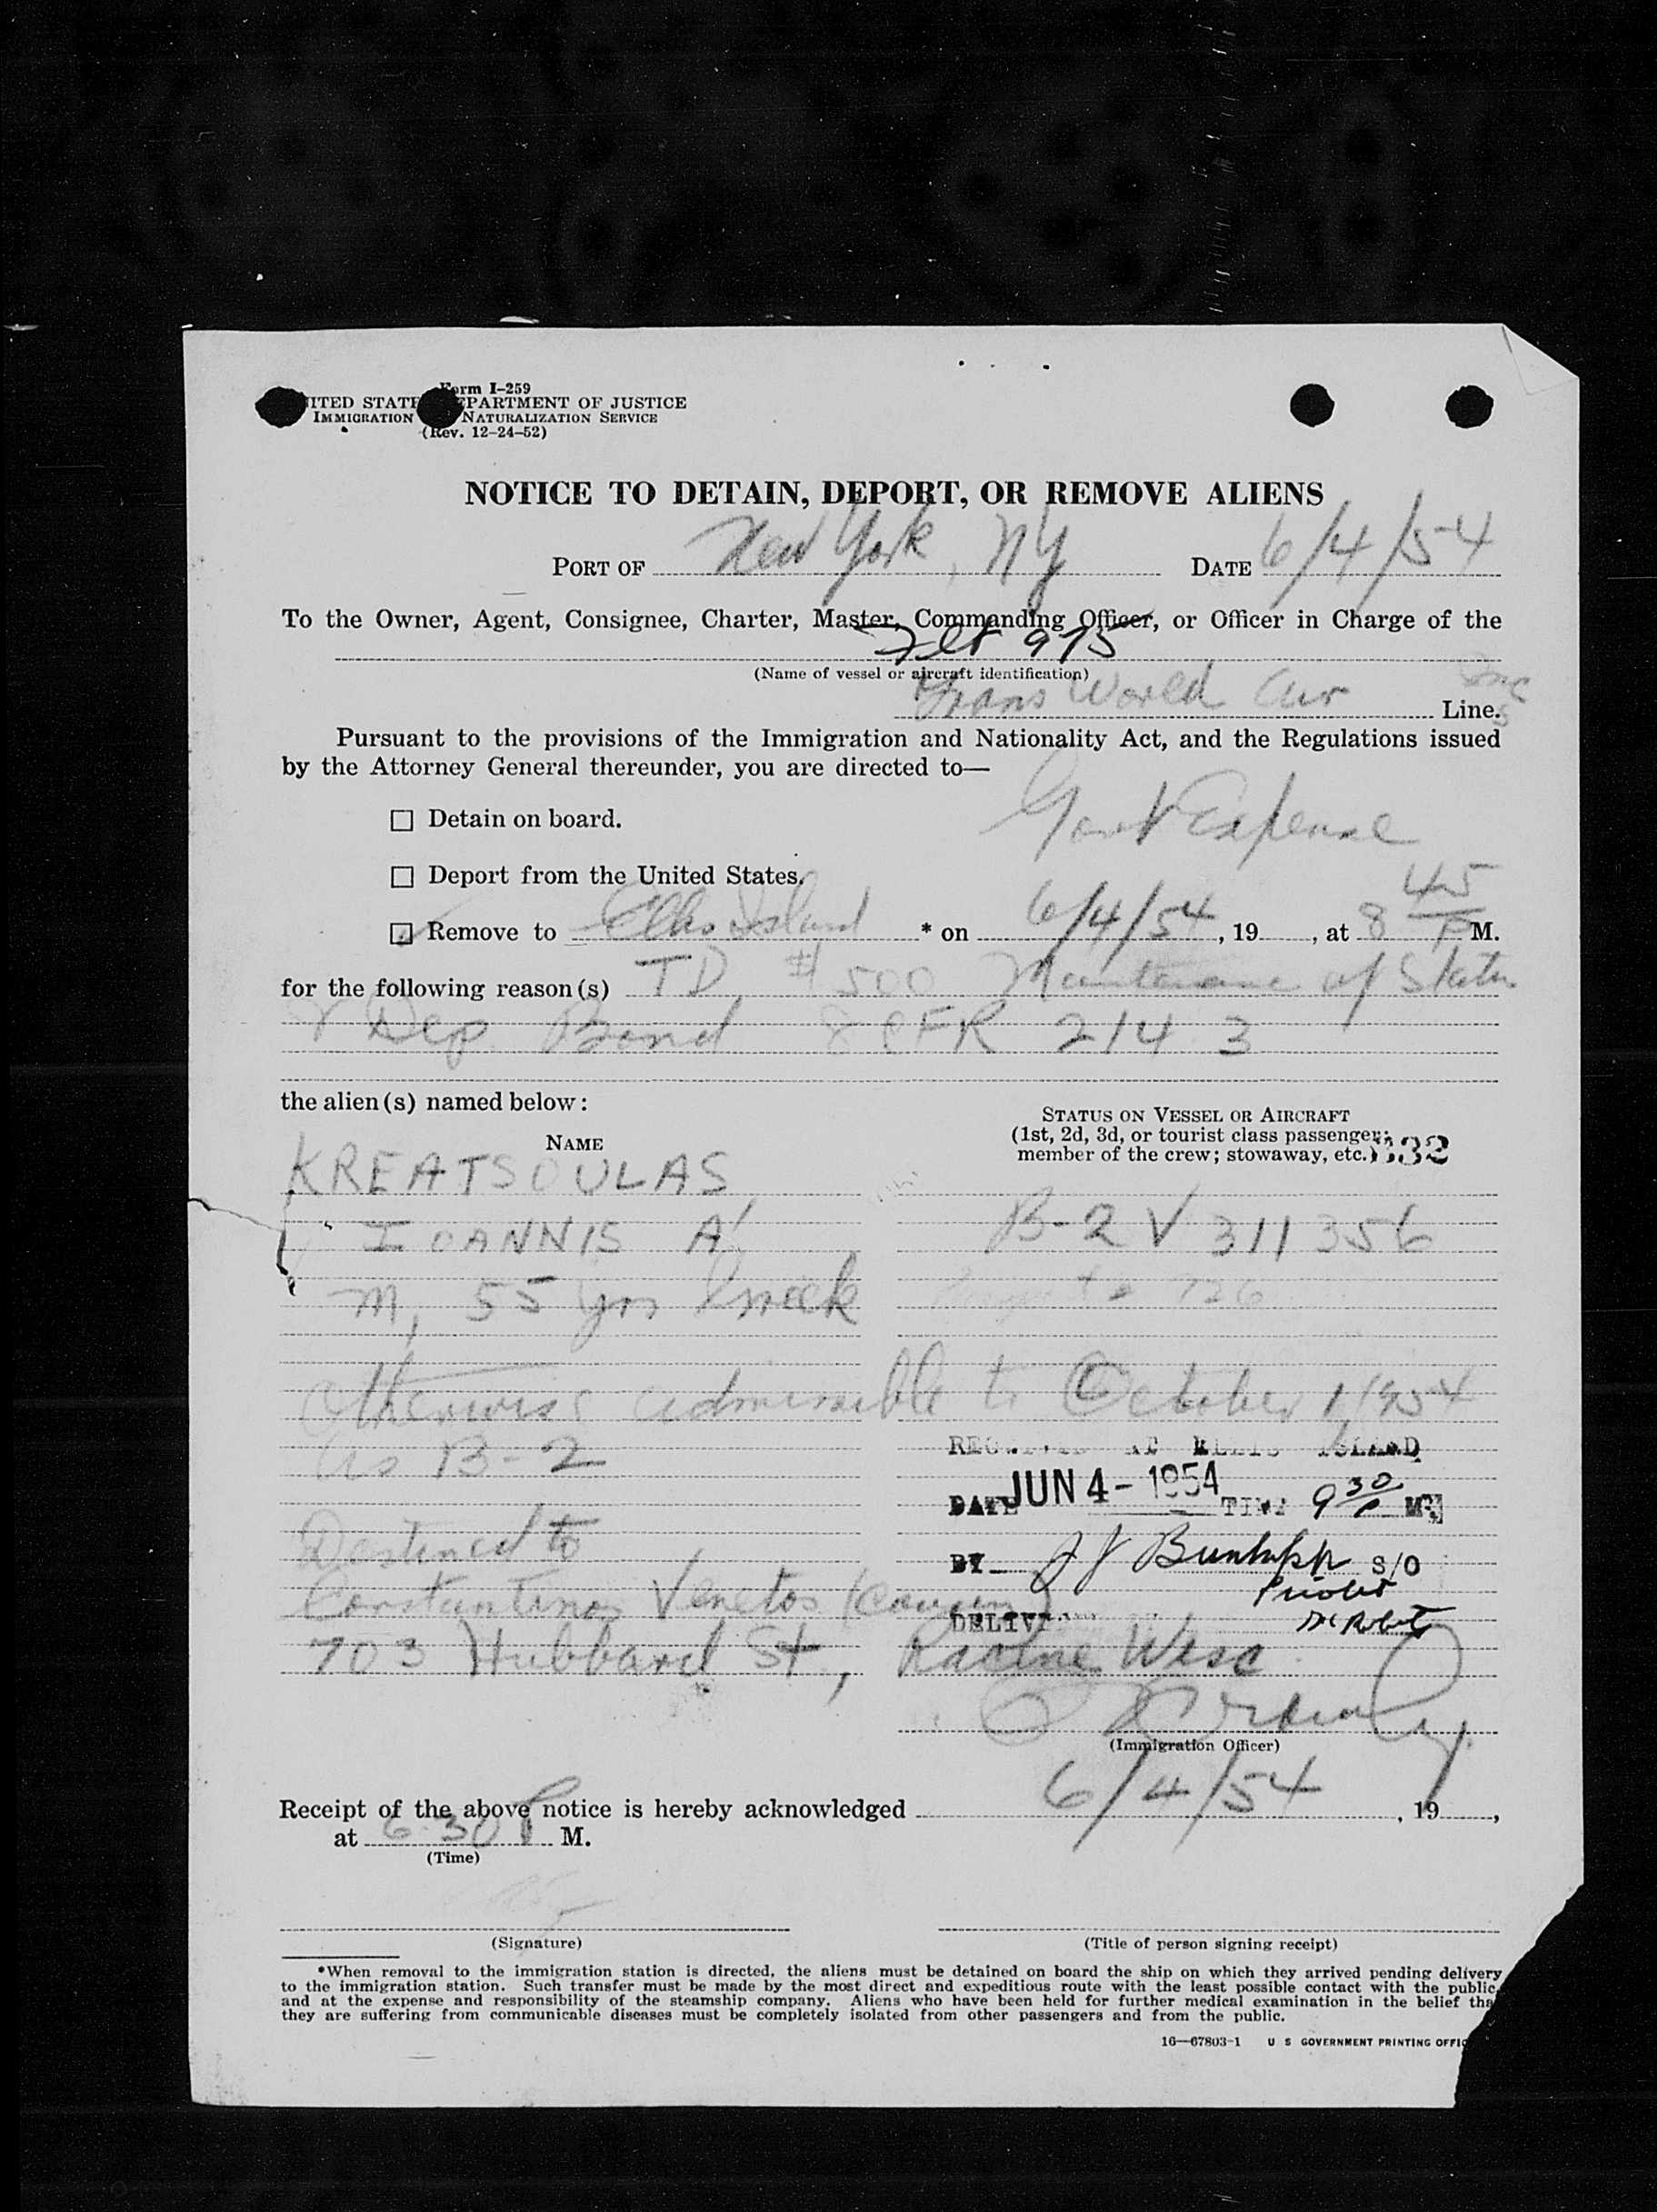 Form I-259
UNITED STATES DEPARTMENT OF JUSTICE
IMMIGRATION NATURALIZATION SERVICE
(Rev. 12-24-52)
NOTICE TO DETAIN, DEPORT, OR REMOVE ALIENS
PORT OF New York, NY DATE 6/4/54
To the Owner, Agent, Consignee, Charter, Master, Commanding Officer, or Officer in Charge of the
Flt 975
(Name of vessel or aircraft identification)
Trans World Air Line.s Inc
Pursuant to the provisions of the Immigration and Nationality Act, and the Regulations issued
by the Attorney General thereunder, you are directed to—
Govt Expense
☐ Detain on board.
☐ Deport from the United States.
☑ Remove to Ellis Island * on 6/4/54, 19 , at 8 45 P M.
for the following reason(s) TD, $500 Maintenance of Status
& Dep Bond 8 CFR 214 3
the alien(s) named below:
STATUS ON VESSEL OR AIRCRAFT
NAME
(1st, 2d, 3d, or tourist class passenger;
member of the crew; stowaway, etc.) 332
KREATSOULAS,
IOANNIS A
B-2 V 311356
M, 55 yrs Greek
726
Otherwise admissible to October 1, 1954
as B-2
RECEIVED AT ELLIS ISLAND
DATE JUN 4 - 1954 TIME 9 30 P M.
Destined to
BY S/O
Constantinos Venetos (Cousin)
DELIVE
703 Hubbard St, Racine Wisc
(Immigration Officer)
Receipt of the above notice is hereby acknowledged 6/4/54, 19 ,
at 6:30 P M.
(Time)
(Signature) (Title of person signing receipt)
*When removal to the immigration station is directed, the aliens must be detained on board the ship on which they arrived pending delivery
to the immigration station. Such transfer must be made by the most direct and expeditious route with the least possible contact with the public,
and at the expense and responsibility of the steamship company. Aliens who have been held for further medical examination in the belief tha
they are suffering from communicable diseases must be completely isolated from other passengers and from the public.
16—67803-1 U S GOVERNMENT PRINTING OFFIC